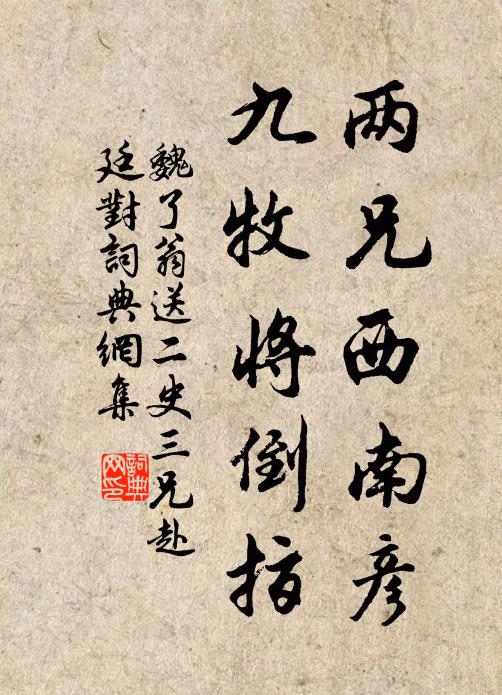 两兄西南彦
九牧将倒指
魏了翁送二史三兄赴
廷對詞典網集
詞典网印